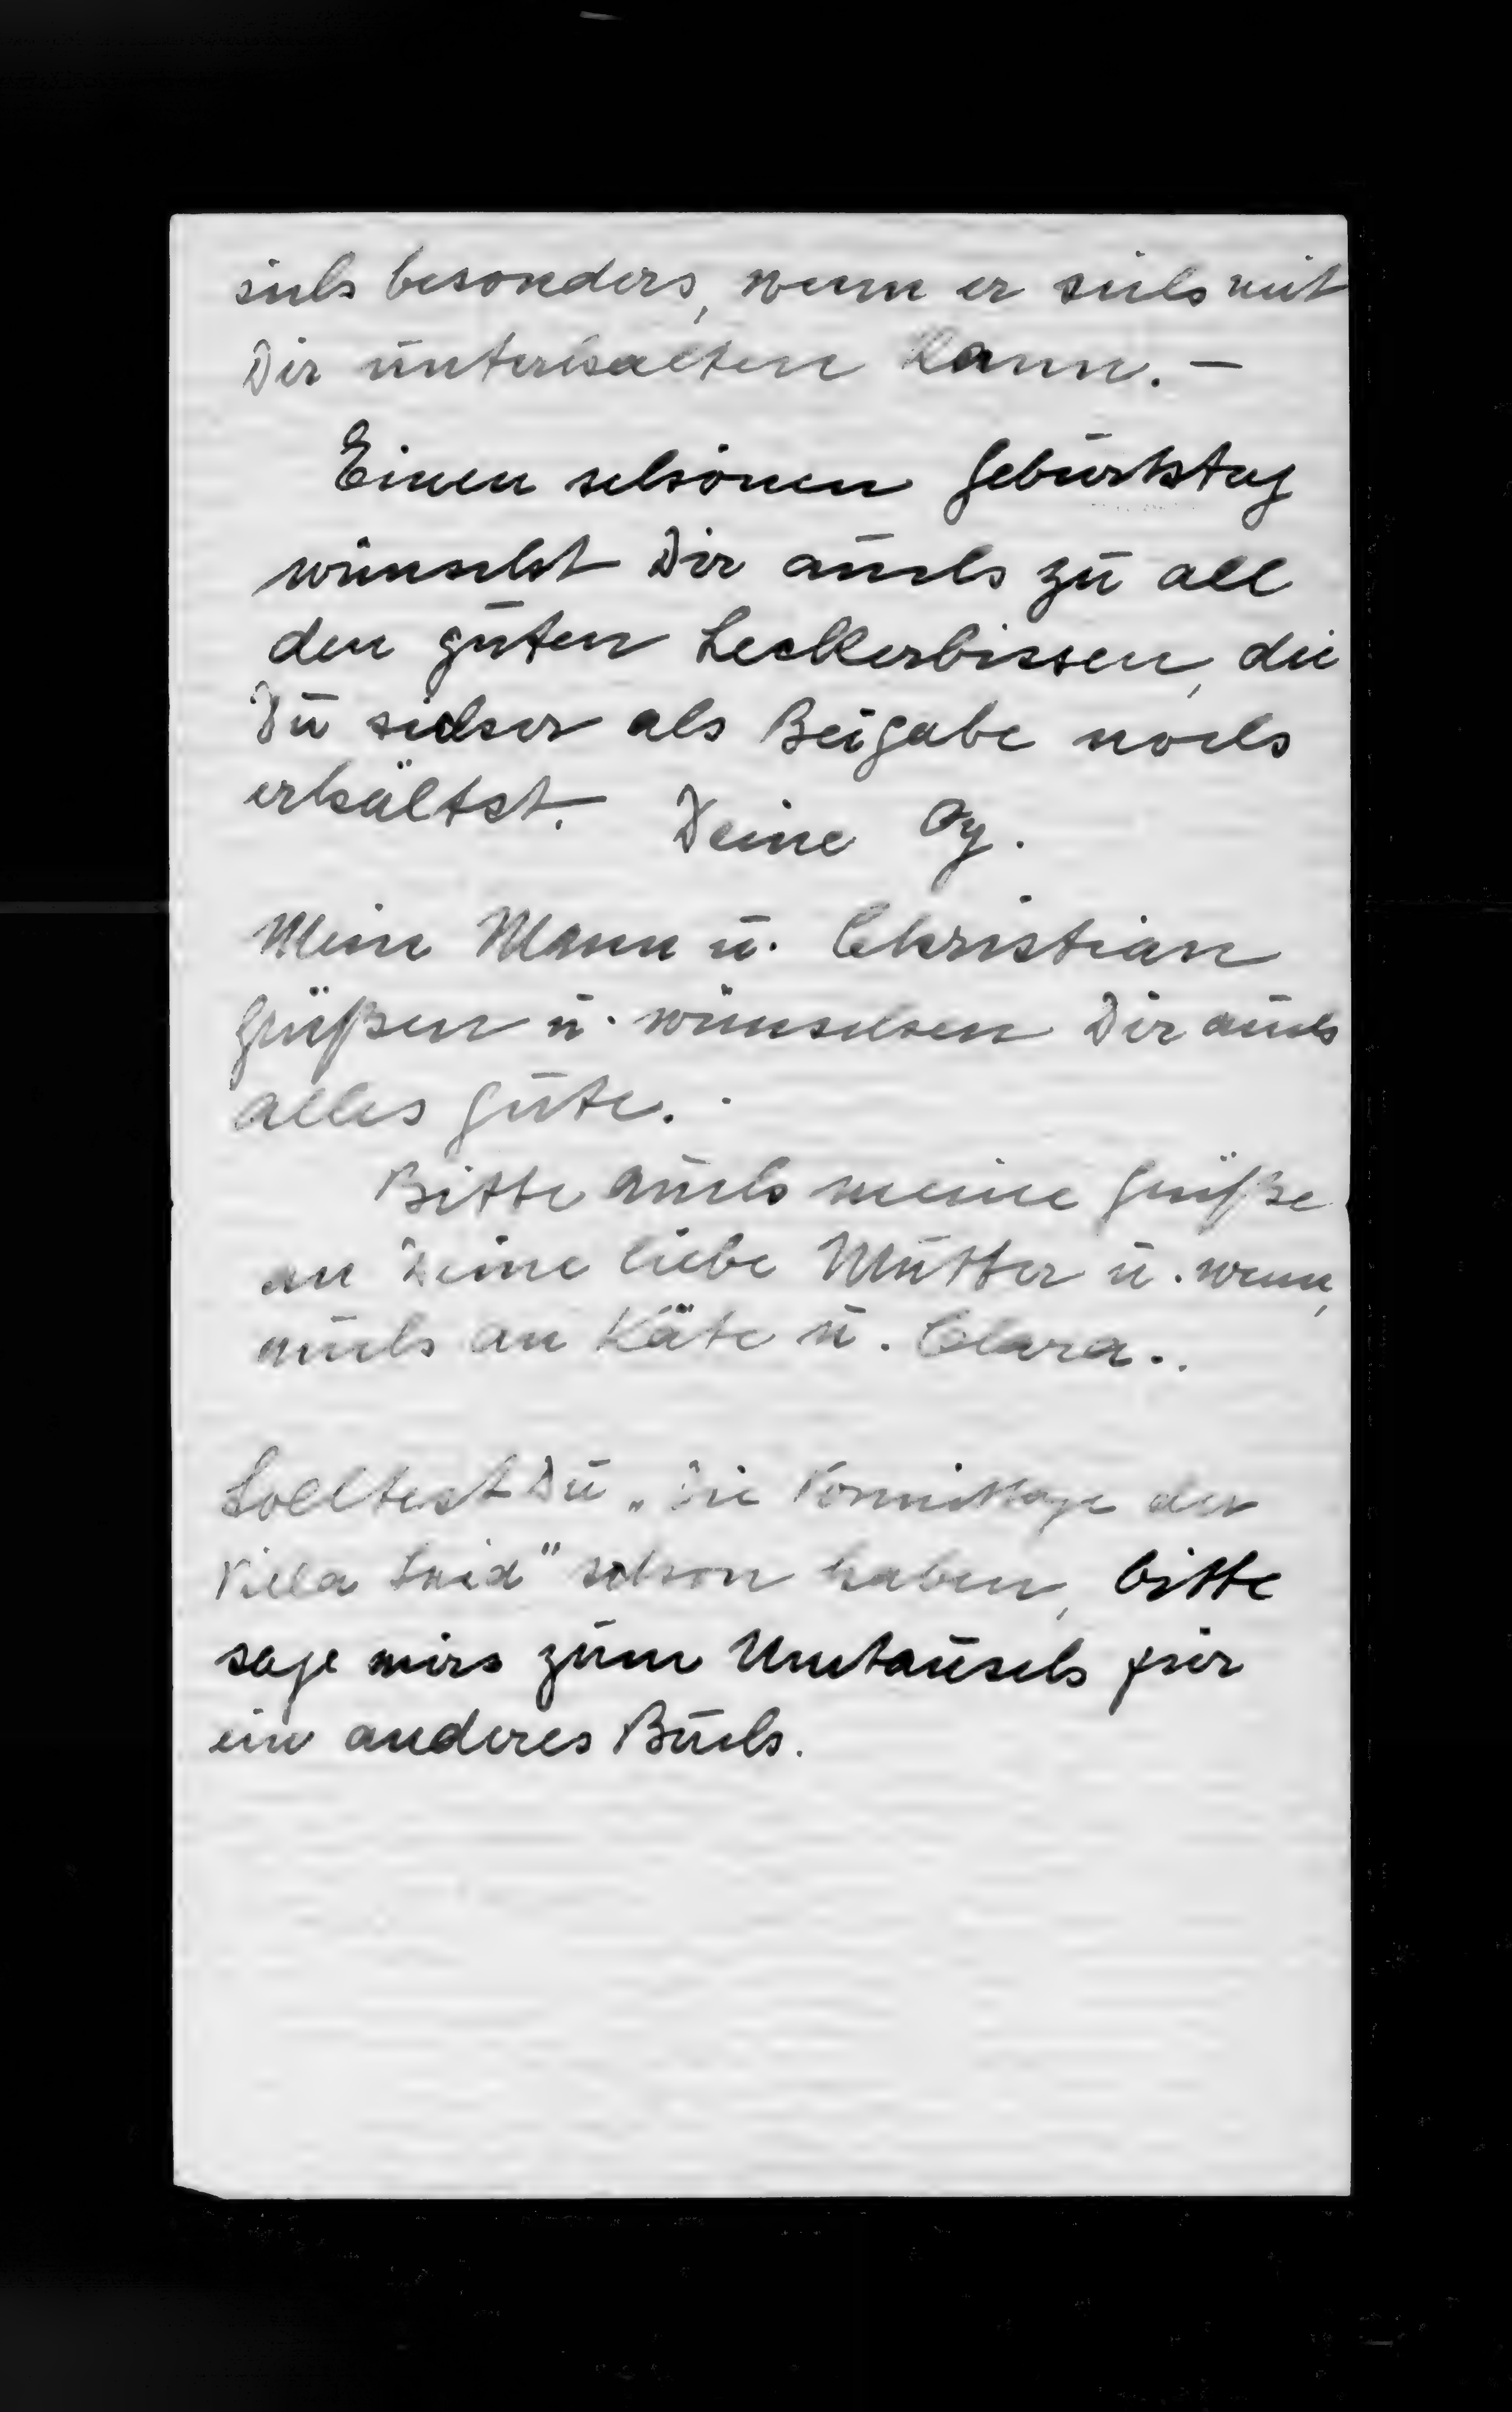 sich besonders, wenn er sich mit
Dir unterhalten kann. –
Einen schönen Geburtstag
wünscht Dir auch zu all
den guten Leckerbissen, die
Du sicher als Beigabe noch
erhältst. Deine Oy.
Mein Mann u. Christian
grüßen u. wünschen Dir auch
alles Gute.
Bitte auch meine Grüße
an Deine liebe Mutter u. wenn,
auch an Käte u. Clara..
Solltest Du „Die Vormittage der
Villa " schon haben, bitte
sage mirs zum Umtausch für
ein anderes Buch.